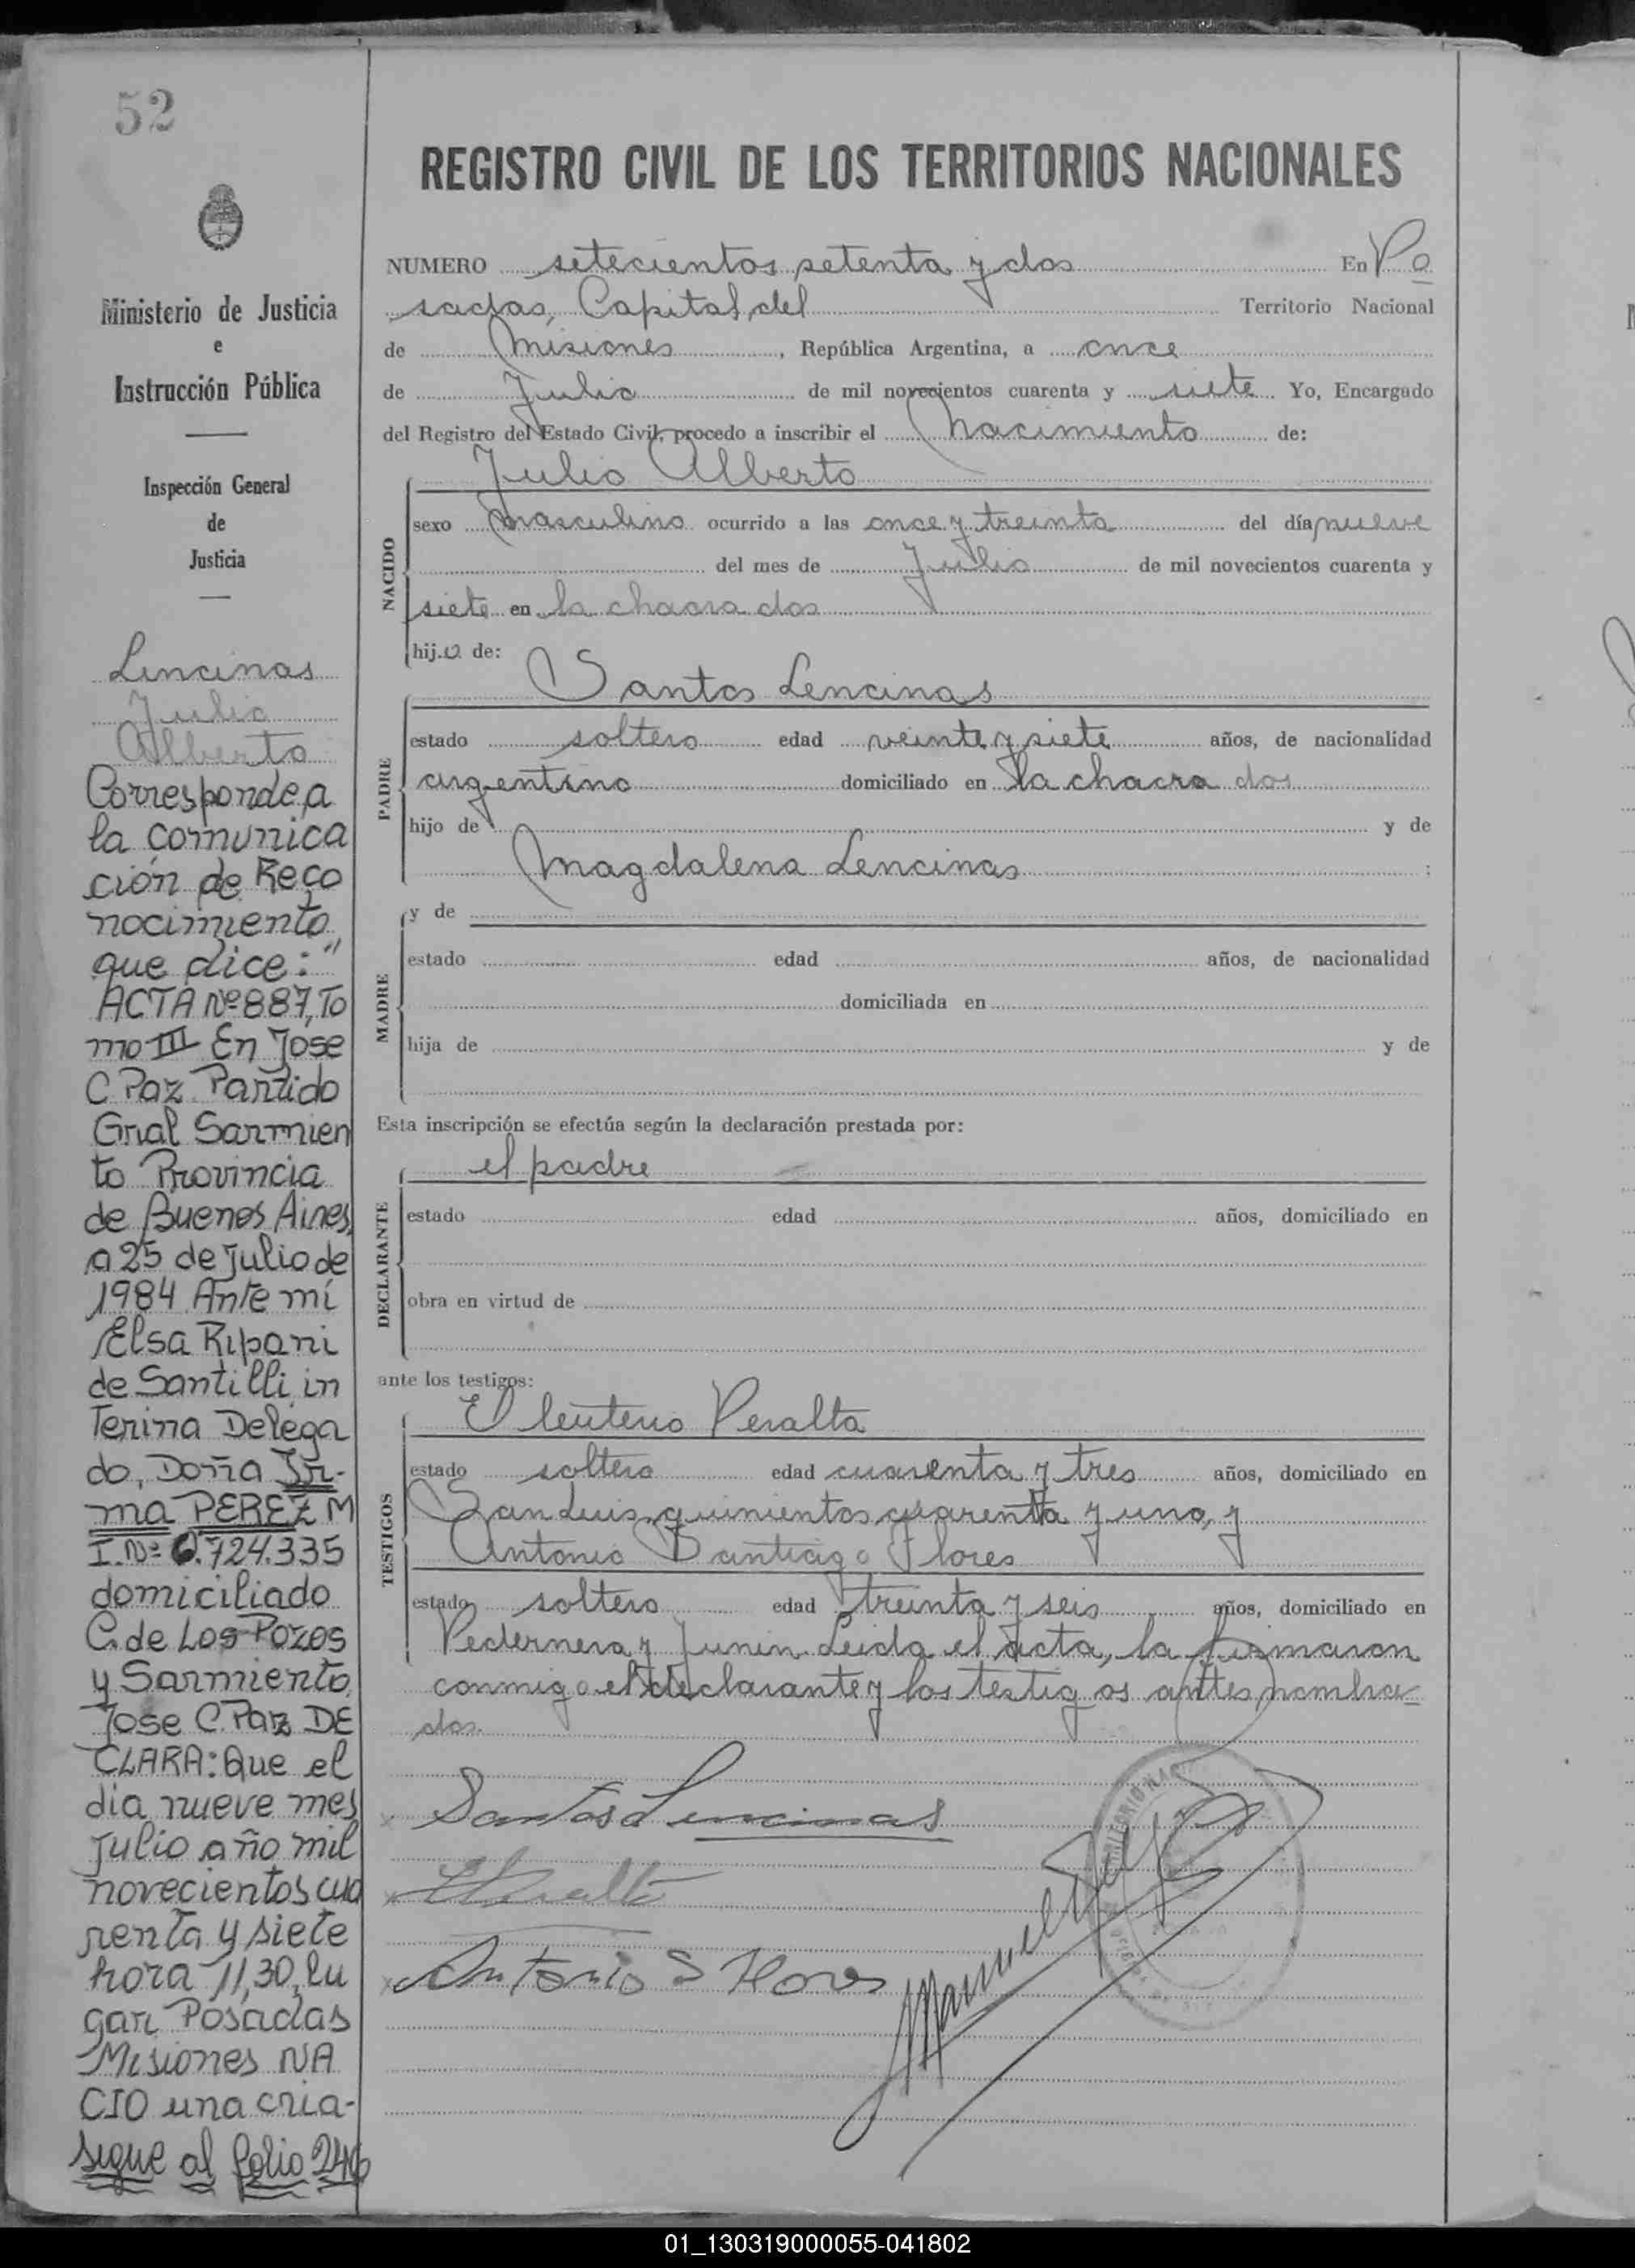 52
Ministerio de Justicia
e
Instrucción Pública
Inspección General
de
Justicia
Lencinas
Julio
Alberto
Corresponde a
la comunica
ción de Reco
nocimiento
que dice: "
ACTA Nº 887, To
mo III En Jose
C Paz Partido
Gral Sarmien
to Provincia
de Buenos Aires,
a 25 de Julio de
1984 Ante mí
Elsa Ripani
de Santilli in
terina Delega
do, Doña Ir-
ma PEREZ M
I. Nº 6.724.335
domiciliado
C. de Los Pozos
y Sarmiento
Jose C. Paz DE
CLARA: Que el
dia nueve mes
Julio año mil
novecientos cua
renta y siete
hora 11,30, lu
gar Posadas
Misiones NA
CIO una cria-
sigue al folio 246
REGISTRO CIVIL DE LOS TERRITORIOS NACIONALES
NUMERO setecientos setenta y dos En Po
sadas, Capital del Territorio Nacional
de Misiones, República Argentina, a once
de Julio de mil novecientos cuarenta y siete Yo, Encargado
del Registro del Estado Civil, procedo a inscribir el Nacimiento de:
NACIDO
Julio Alberto
sexo masculino ocurrido a las once y treinta del día nueve
del mes de Julio de mil novecientos cuarenta y
siete en la chacra dos
hijo de:
PADRE
Santos Lencinas
estado soltero edad veinte y siete años, de nacionalidad
argentino domiciliado en la chacra dos
hijo de y de
Magdalena Lencinas ;
MADRE
y de
estado edad años, de nacionalidad
domiciliada en
hija de y de
Esta inscripción se efectúa según la declaración prestada por:
DECLARANTE
el padre
estado edad años, domiciliado en
obra en virtud de
ante los testigos:
TESTIGOS
Eleuterio Peralta
estado soltero edad cuarenta y tres años, domiciliado en
San Luis quinientos cuarenta y uno, y
Antonio Santiago Flores
estado soltero edad treinta y seis años, domiciliado en
Pedernera y Junin. Leida el acta, la firmaron
conmigo el declarante y los testigos antes nombra-
dos.
Santos Lencinas
Antonio S Flores
Manuel
01_130319000055-041802